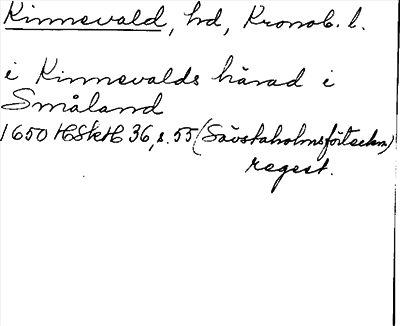 Kinnevald, hd, Kronob. l.
i Kinnevalds härad i
Småland
1650 HSkH 36, s. 55 (Sävstaholmsförteckn)
regest.